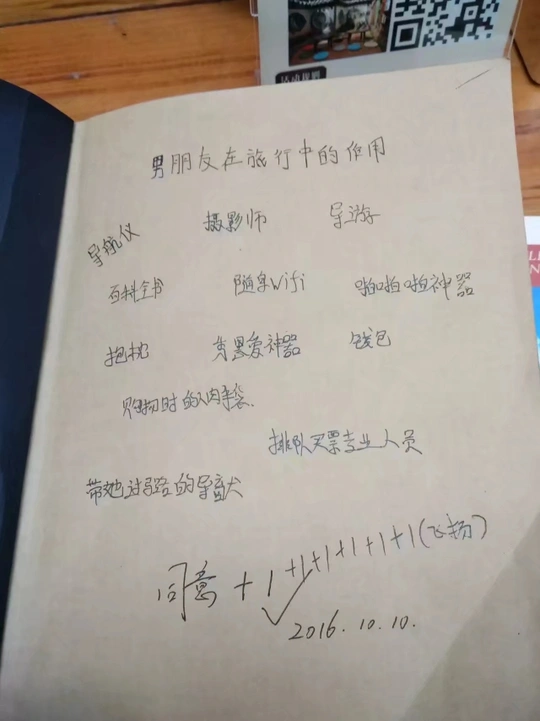 活动规则
男朋友在旅行中的作用
导航仪 摄影师 导游
百科全书 随身Wifi 啪啪啪神器
抱枕 秀恩爱神器 钱包
购物时的人肉手袋.
排队买票专业人员
带她过马路的导盲犬
同意+1 +1+1+1+1+1(飞扬)
2016.10.10.